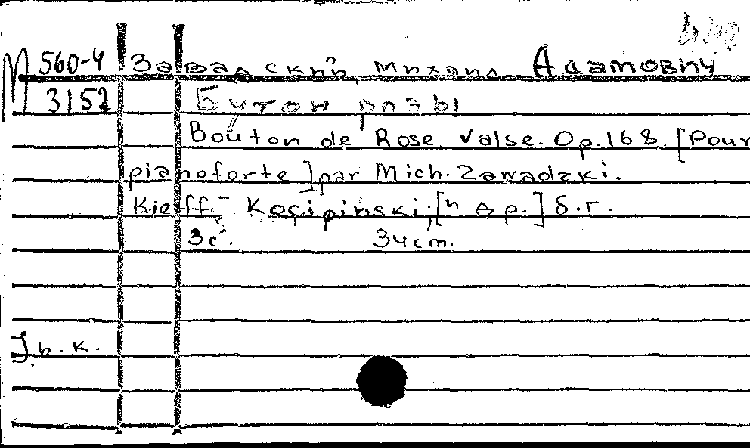 М 560-4 Завадский, Михаил Адамович
3152 Бутон розы
Bouton de Rose Valse. Op. 168. [Pour
pianoforte] par Mich. Zawadzki.
Kieff.- [н др.] б. г.
3с. 34cm.
J.b.k.